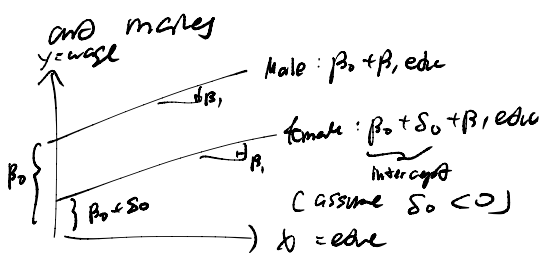 and males
y=wage
Male : β₀ + β₁ educ
β₁
female : β₀ + δ₀ + β₁ educ
β₁
intercept
β₀
β₀ + δ₀
(assume δ₀ < 0)
x = educ